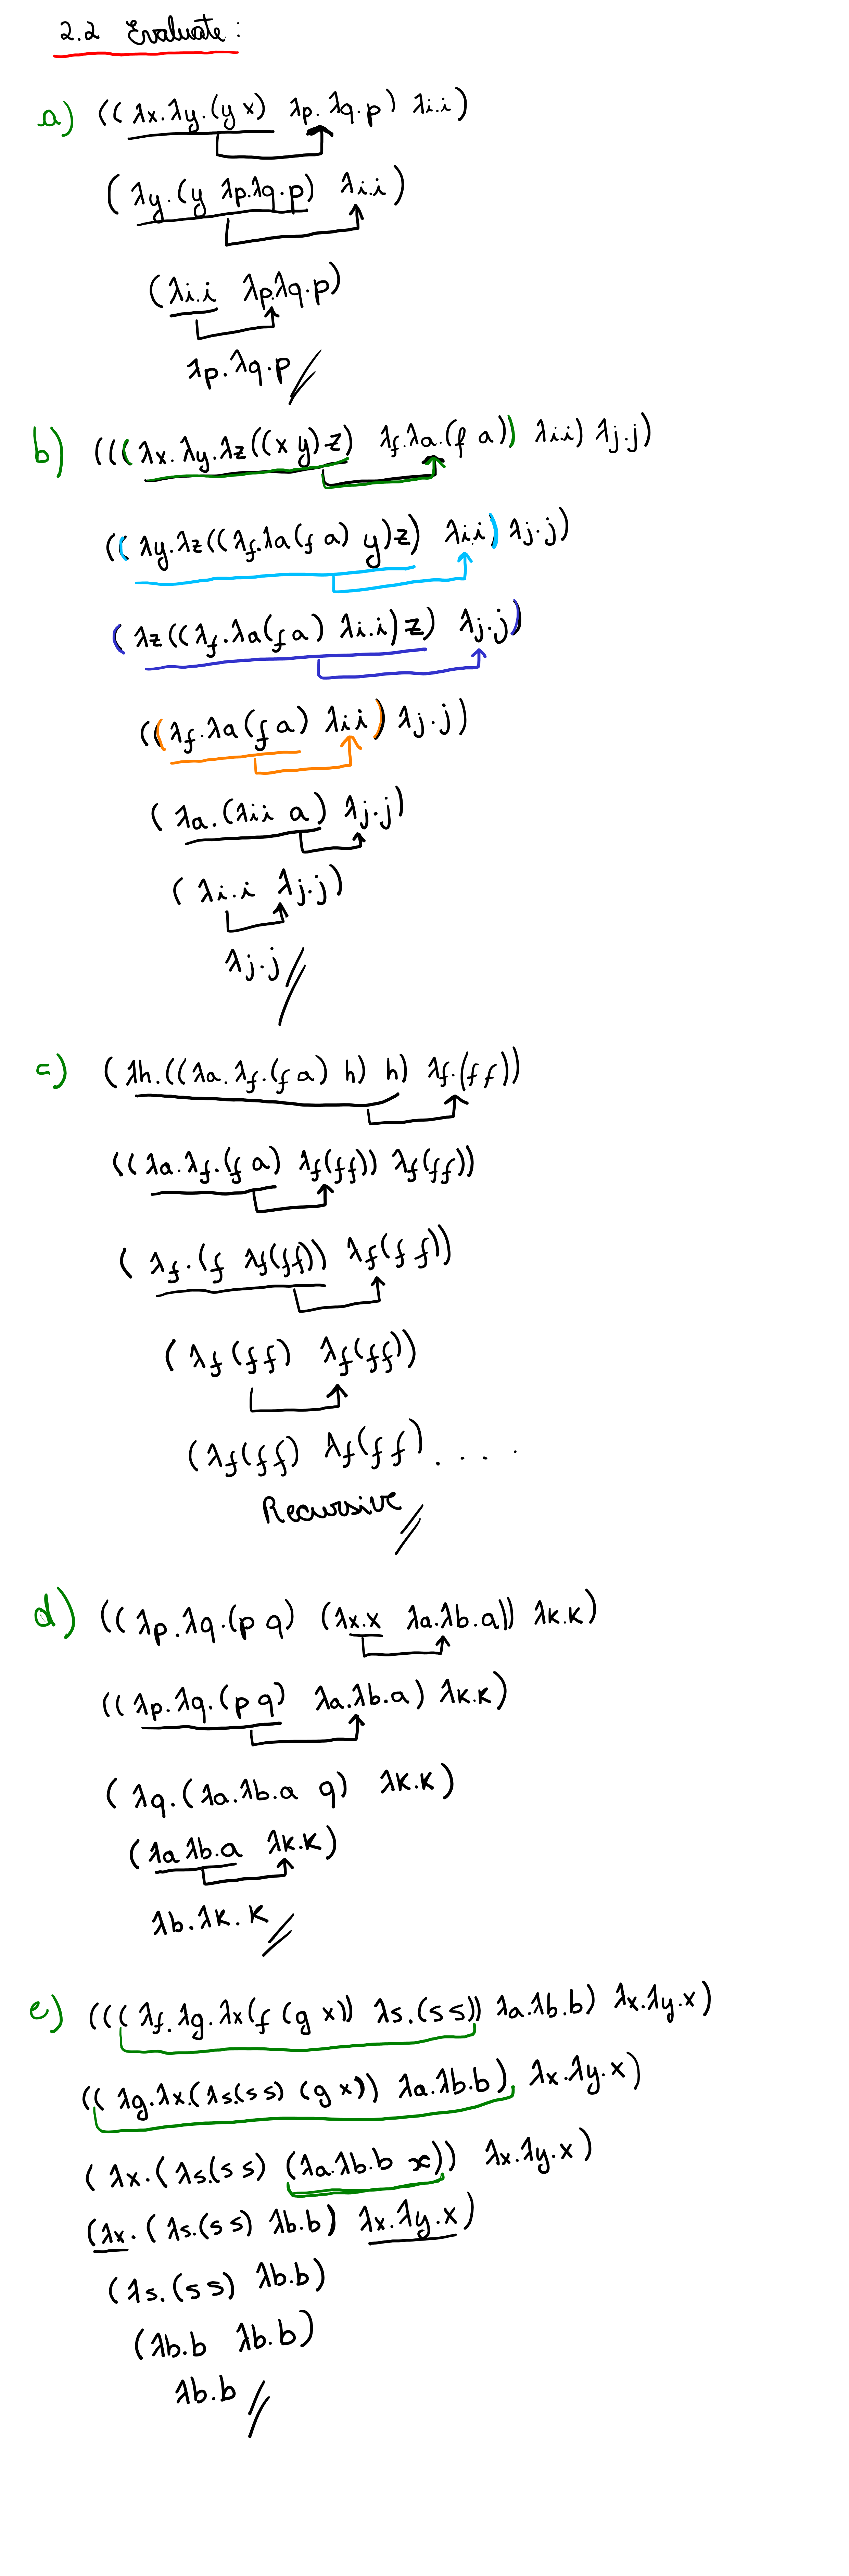 2.2 Evaluate:
a) ((λx.λy.(y x) λp.λq.p) λi.i)
(λy.(y λp.λq.p) λi.i)
(λi.i λp.λq.p)
λp.λq.p //
b) (((λx.λy.λz((x y) z) λf.λa.(f a)) λi.i) λj.j)
((λy.λz((λf.λa(f a) y) z) λi.i) λj.j)
(λz((λf.λa(f a) λi.i) z) λj.j)
((λf.λa(f a) λi i) λj.j)
(λa.(λi i a) λj.j)
(λi.i λj.j)
λj.j //
c) (λh.((λa.λf.(f a) h) h) λf.(f f))
((λa.λf.(f a) λf(f f)) λf(f f))
(λf.(f λf(f f)) λf(f f))
(λf(f f) λf(f f))
(λf(f f) λf(f f) . . . . .
Recursive //
d) ((λp.λq.(p q) (λx.x λa.λb.a)) λk.k)
((λp.λq.(p q) λa.λb.a) λk.k)
(λq.(λa.λb.a q) λk.k)
(λa λb.a λk.k)
λb.λk.k //
e) (((λf.λg.λx(f (g x)) λs.(s s)) λa.λb.b) λx.λy.x)
((λg.λx.(λs.(s s) (g x)) λa.λb.b) λx.λy.x)
(λx.(λs.(s s) (λa.λb.b x)) λx.λy.x)
(λx.(λs.(s s) λb.b) λx.λy.x)
(λs.(s s) λb.b)
(λb.b λb.b)
λb.b //